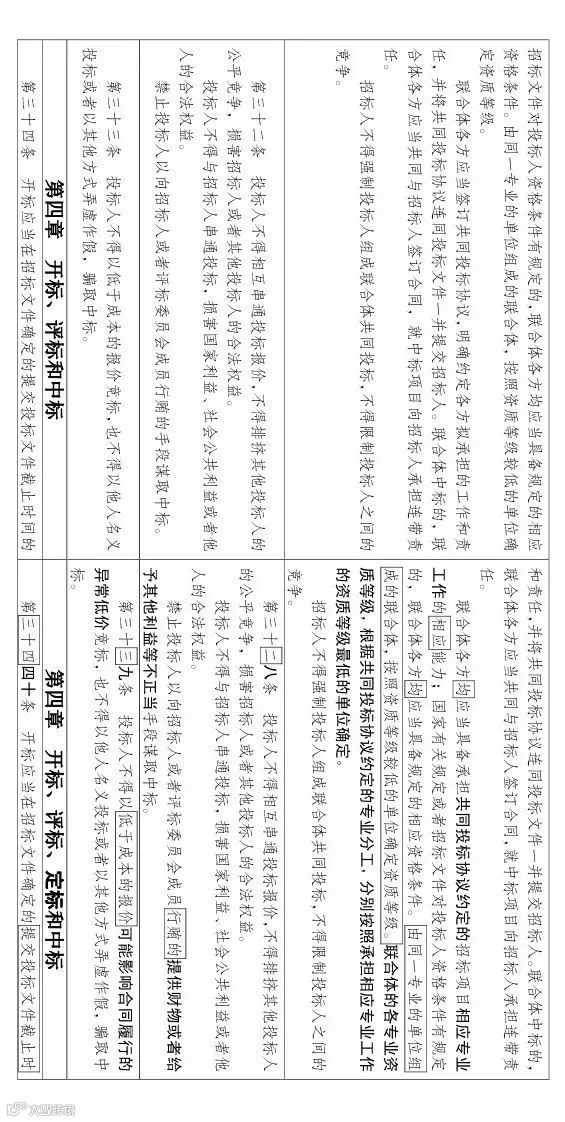 招标文件对投标人资格条件有规定的，联合体各方均应当具备规定的相应
资格条件。由同一专业的单位组成的联合体，按照资质等级较低的单位确
定资质等级。
联合体各方应当签订共同投标协议，明确约定各方拟承担的工作和责
任，并将共同投标协议连同投标文件一并提交招标人。联合体中标的，联
合体各方应当共同与招标人签订合同，就中标项目向招标人承担连带责
任。
招标人不得强制投标人组成联合体共同投标，不得限制投标人之间的
竞争。
和责任，并将共同投标协议连同投标文件一并提交招标人。联合体中标的，
联合体各方应当共同与招标人签订合同，就中标项目向招标人承担连带责
任。
联合体各方均应当具备承担共同投标协议约定的招标项目相应专业
工作的相应能力；国家有关规定或者招标文件对投标人资格条件有规定
的，联合体各方均应当具备规定的相应资格条件。由同一专业的单位组
成的联合体，按照资质等级较低的单位确定资质等级。联合体的各专业资
质等级，根据共同投标协议约定的专业分工，分别按照承担相应专业工作
的资质等级最低的单位确定。
招标人不得强制投标人组成联合体共同投标，不得限制投标人之间的
竞争。
第三十二条　投标人不得相互串通投标报价，不得排挤其他投标人的
公平竞争，损害招标人或者其他投标人的合法权益。
投标人不得与招标人串通投标，损害国家利益、社会公共利益或者他
人的合法权益。
禁止投标人以向招标人或者评标委员会成员行贿的手段谋取中标。
第三十二八条　投标人不得相互串通投标报价，不得排挤其他投标人
的公平竞争，损害招标人或者其他投标人的合法权益。
投标人不得与招标人串通投标，损害国家利益、社会公共利益或者他
人的合法权益。
禁止投标人以向招标人或者评标委员会成员行贿的提供财物或者给
予其他利益等不正当手段谋取中标。
第三十三条　投标人不得以低于成本的报价竞标，也不得以他人名义
投标或者以其他方式弄虚作假，骗取中标。
第三十三九条　投标人不得以低于成本的报价可能影响合同履行的
异常低价竞标，也不得以他人名义投标或者以其他方式弄虚作假，骗取中
标。
第四章　开标、评标和中标
第四章　开标、评标、定标和中标
第三十四条　开标应当在招标文件确定的提交投标文件截止时间的
第三十四四十条　开标应当在招标文件确定的提交投标文件截止时